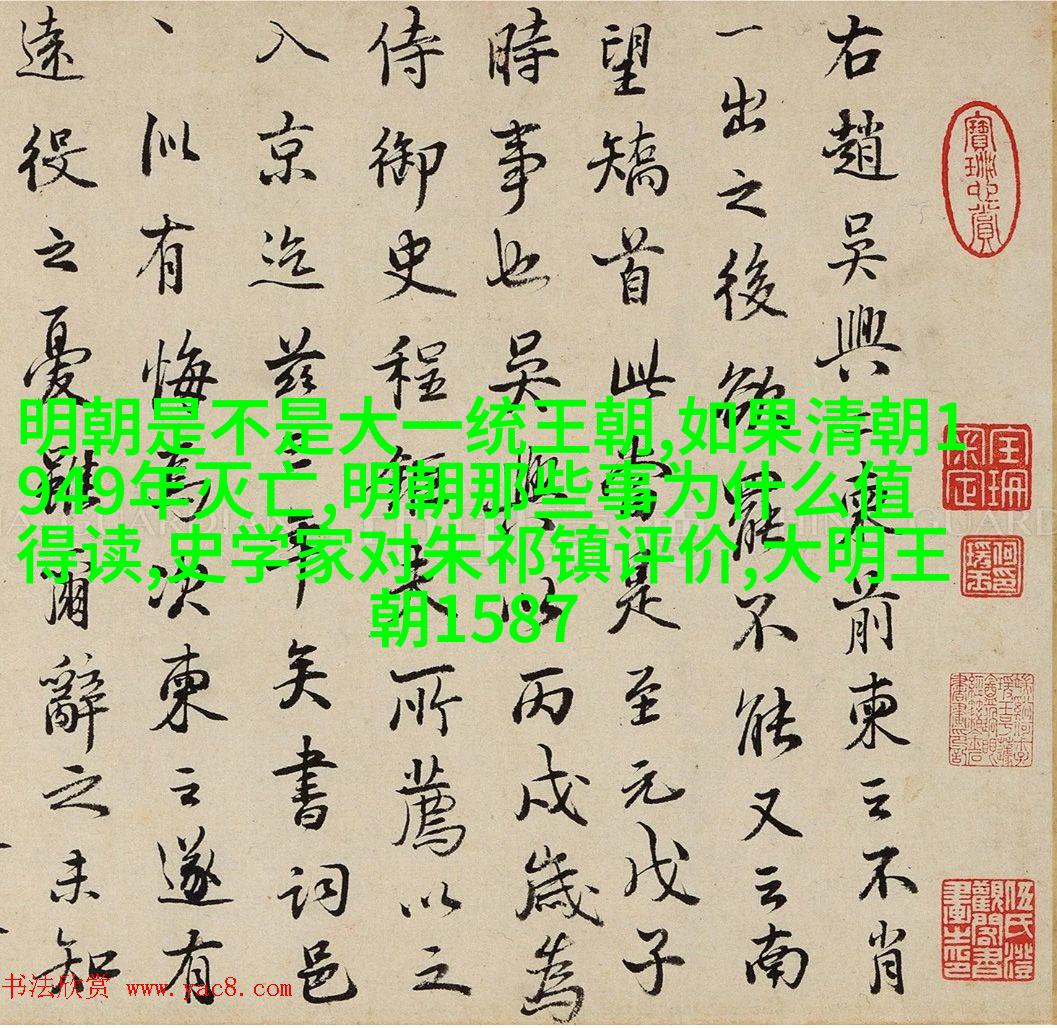 右趙吳興二柬前柬云不肖
一出之後欲罷不能又云南
望矯首此當是至元戊子
時事也吳興以丙戌歲為
侍御史程夫所薦以之
入京迄茲三年矣書詞邑
丶似有悔焉次柬云遂有
遠役之憂雖爾辭之未知
明朝是不是大一统王朝,如果清朝1
949年灭亡,明朝那些事为什么值
得读,史学家对朱祁镇评价,大明王
朝1587
书法欣赏 www.yac8.com